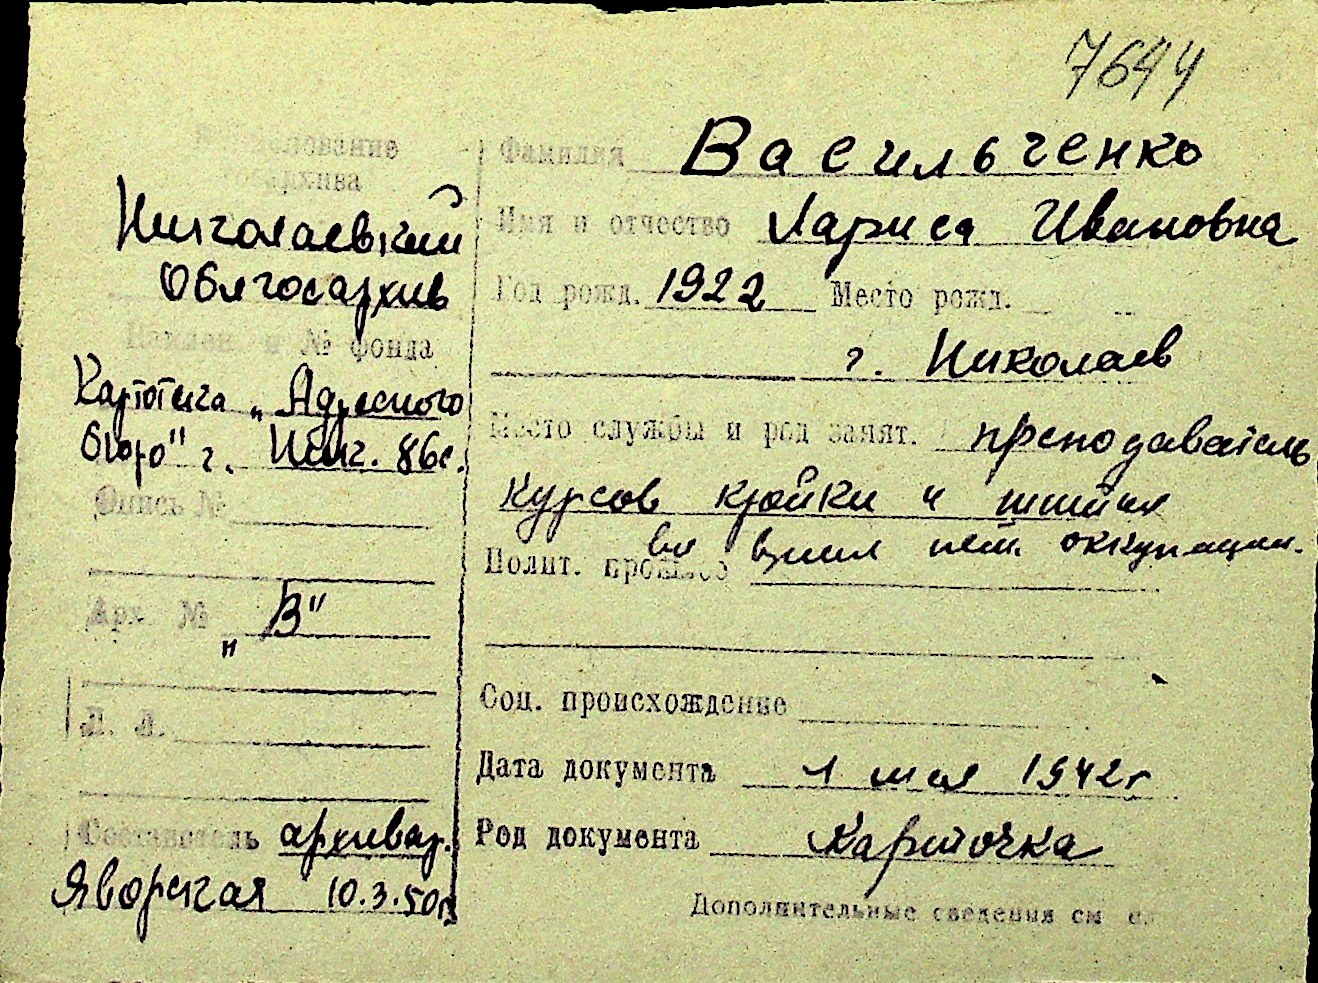 7644
Наименование
госархива
Николаевский
Облгосархив
Назван. и № фонда
Картотека „Адресного
бюро" г.
Опись №
Арх. №
„В"
Л. Л.
Составитель архивар.
Яворская 10.3.50г.
Фамилия Васильченко
Имя и отчество Лариса Ивановна
Год рожд. 1922 Место рожд.
г. Николаев
Место службы и род занят. преподаватель
курсов кройки и шитья
во время нем. оккупации.
Полит. прошлое
Соц. происхождение
Дата документа 1 мая 1942г
Род документа Карточка
Дополнительные сведения см